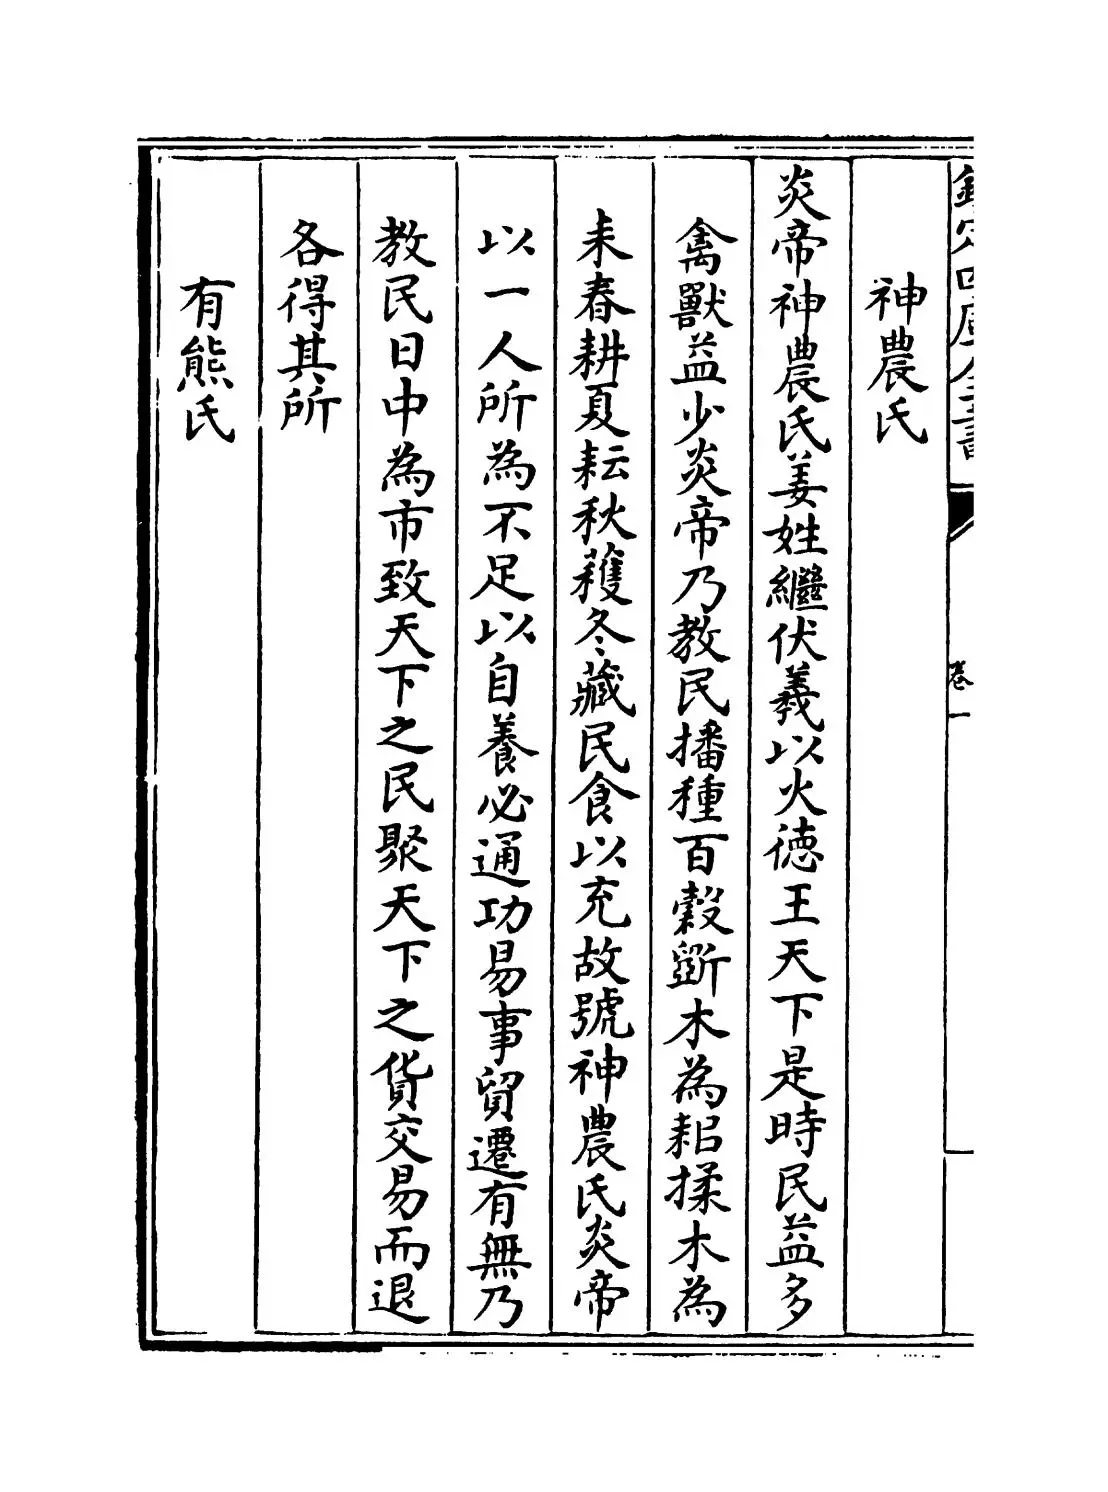 欽定四庫全書
卷一
神農氏
炎帝神農氏姜姓繼伏羲以火徳王天下是時民益多
禽獸益少炎帝乃教民播種百穀斲木為耜揉木為
耒春耕夏耘秋穫冬藏民食以充故號神農氏炎帝
以一人所為不足以自養必通功易事貿遷有無乃
教民日中為市致天下之民聚天下之貨交易而退
各得其所
有熊氏